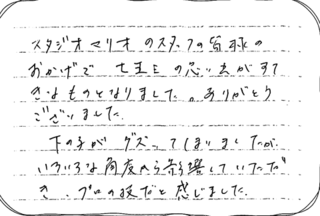 スタジオマリオのスタッフの皆様の
おかげで 七五三の思い出がすて
きなものとなりました。ありがとう
ございました。
下の子が グズってしまいましたが、
いろいろな角度から影撮していただ
き、プロの技だと感じました。